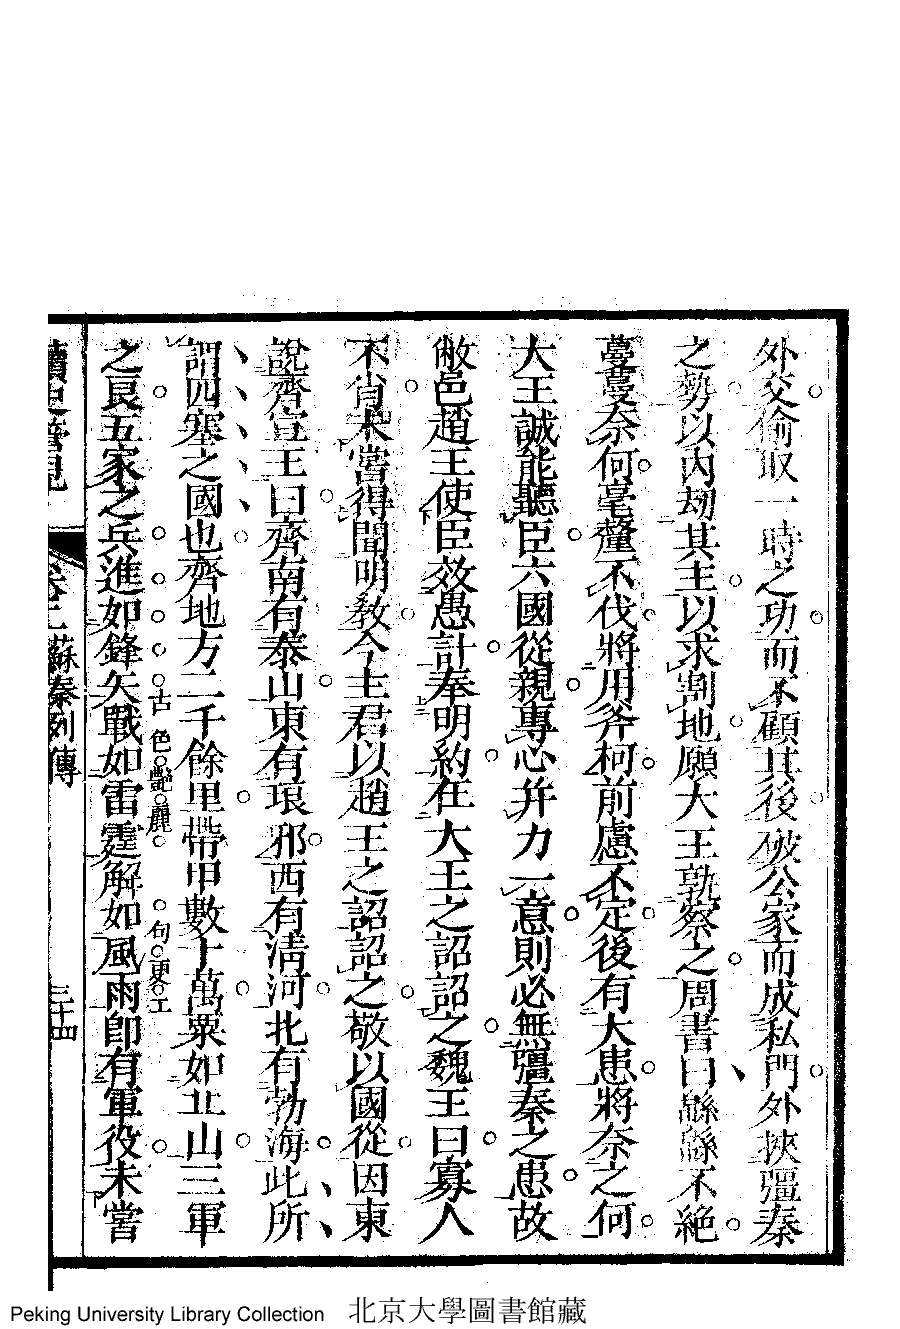 外交偷取一時之功而不顧其後破公家而成私門外挾彊秦
之勢以內刼其主以求割地願大王孰察之周書曰緜緜不絶
蔓蔓奈何毫釐不伐將用斧柯前慮不定後有大患將奈之何
大王誠能聽臣六國從親專心幷力一意則必無彊秦之患故
敝邑趙王使臣效愚計奉明約在大王之詔詔之魏王曰寡人
不肖未嘗得聞明敎今主君以趙王之詔詔之敬以國從因東
說齊宣王曰齊南有泰山東有琅邪西有淸河北有勃海此所
謂四塞之國也齊地方二千餘里帶甲數十萬粟如丘山三軍
之良五家之兵進如鋒矢戰如雷霆解如風雨卽有軍役未嘗
古色艷麗 句更工
讀史管見 卷二 蘇秦列傳 三十四
Peking University Library Collection 北京大學圖書館藏